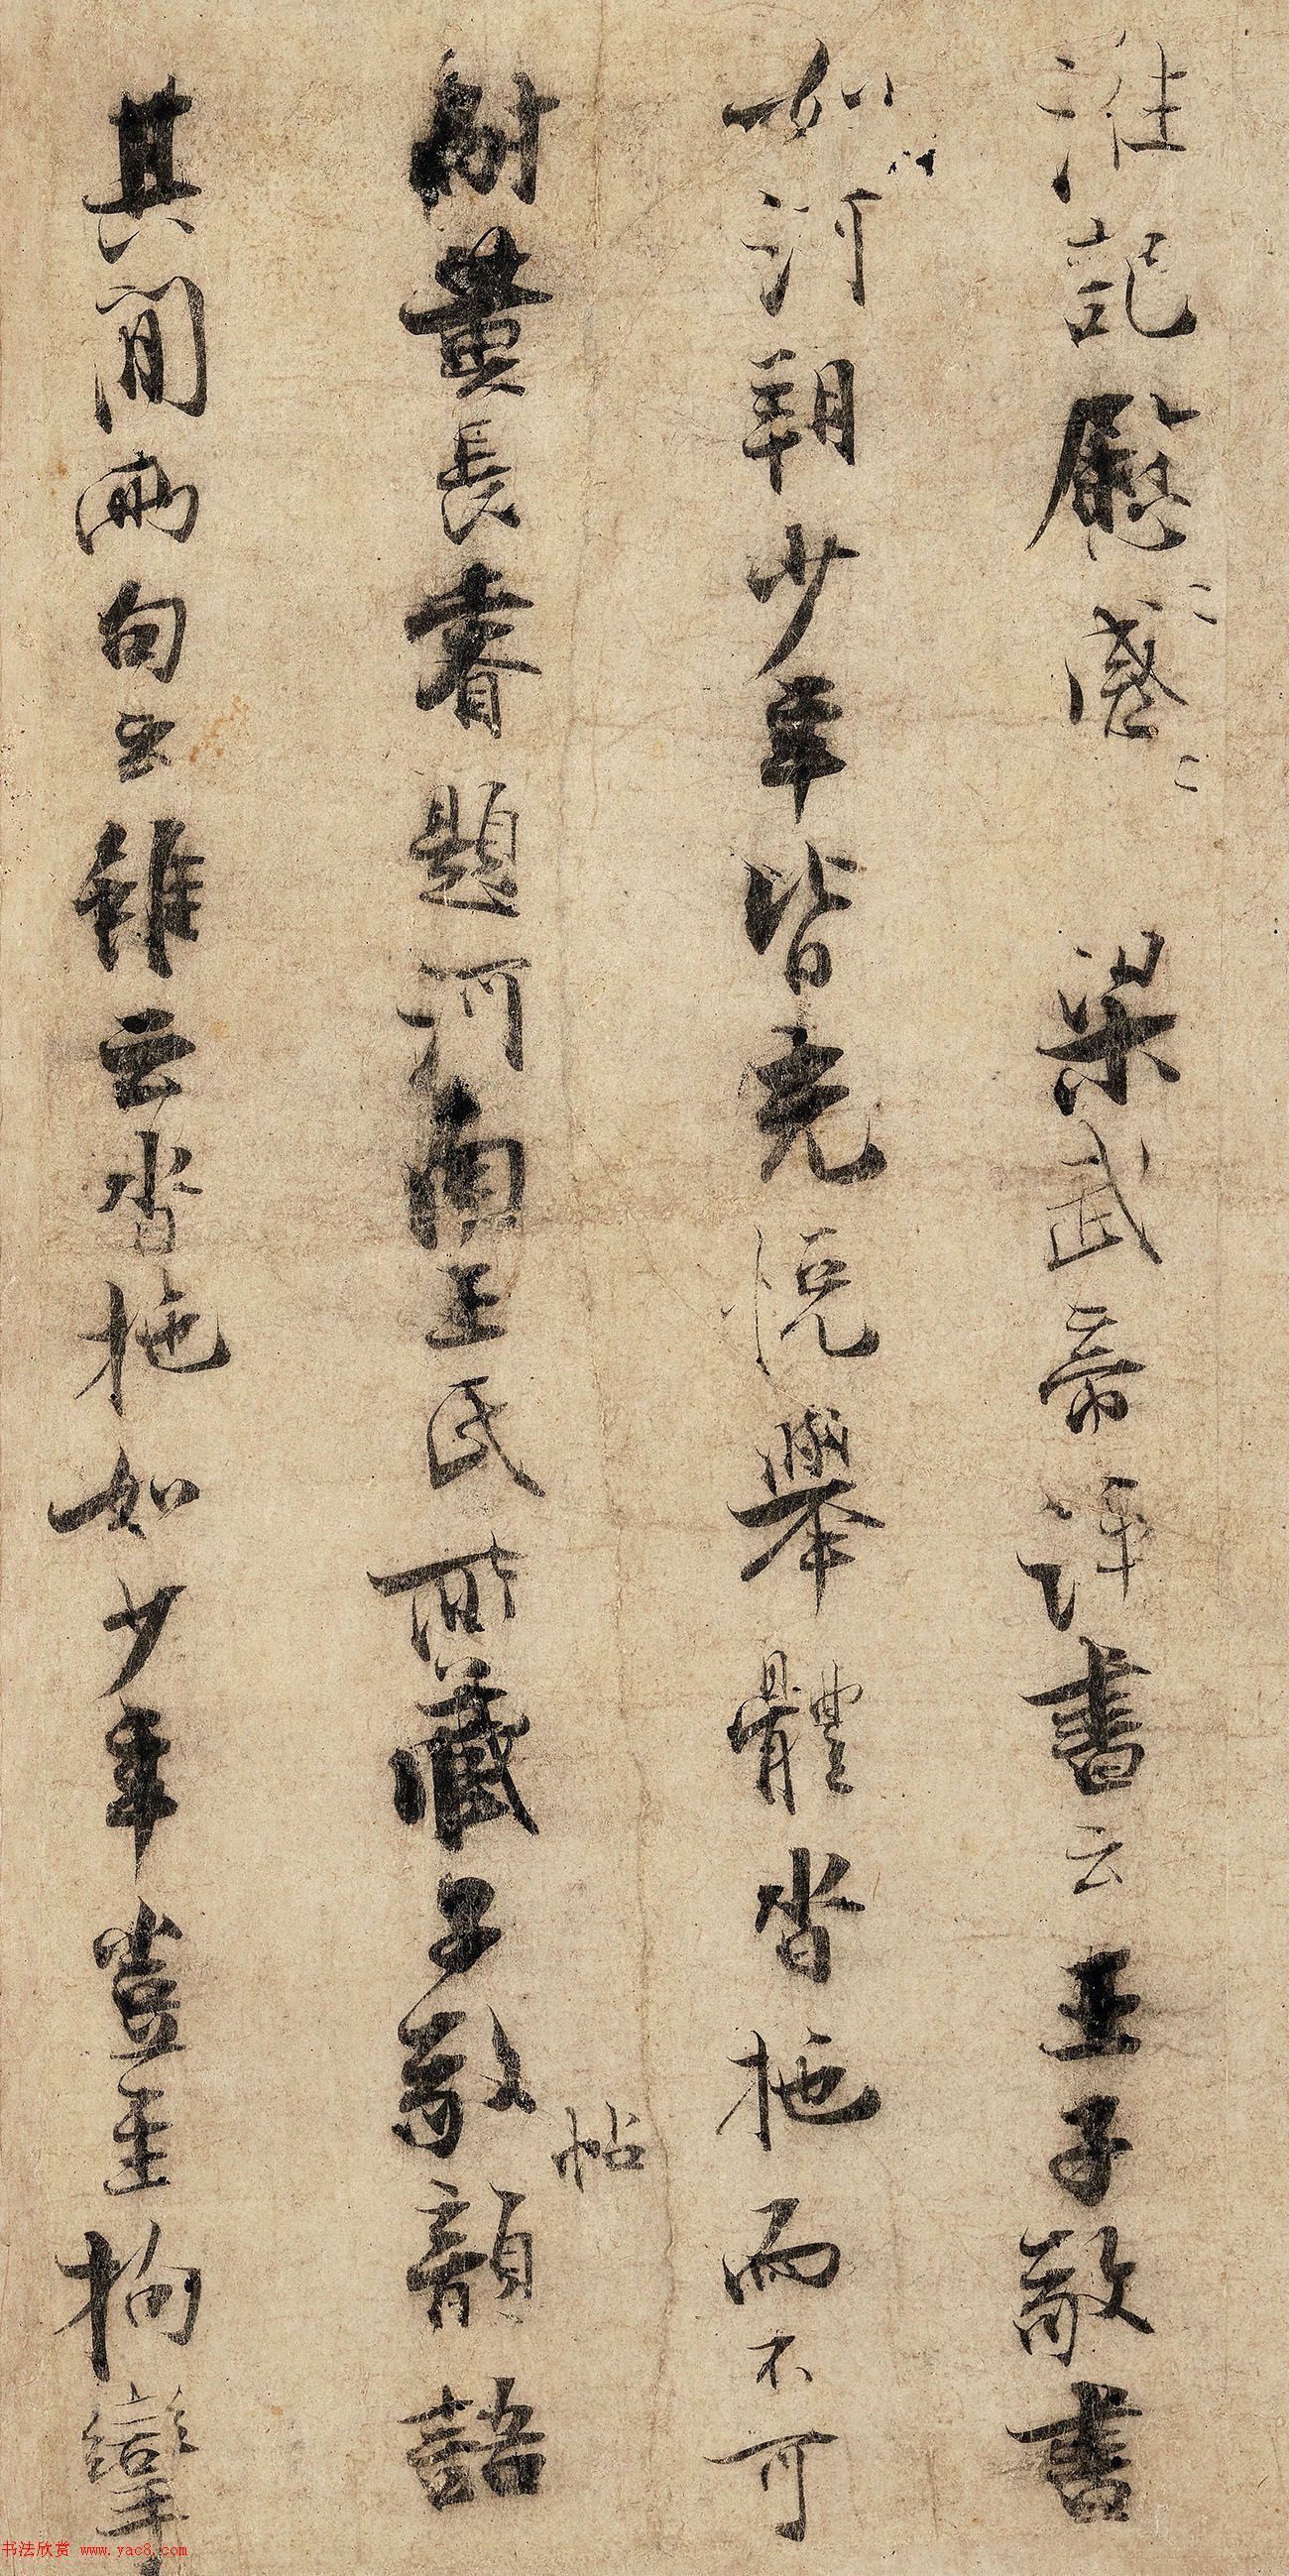 淮記慰〻感〻 梁武帝評書云王子敬書
如河朝少年皆充悅舉體沓拖而不可
耐黃長睿題河南王氏所藏子敬帖韻語
其間兩句云雖云沓拖如少年豈至拘攣
书法欣赏 www.yac8.com